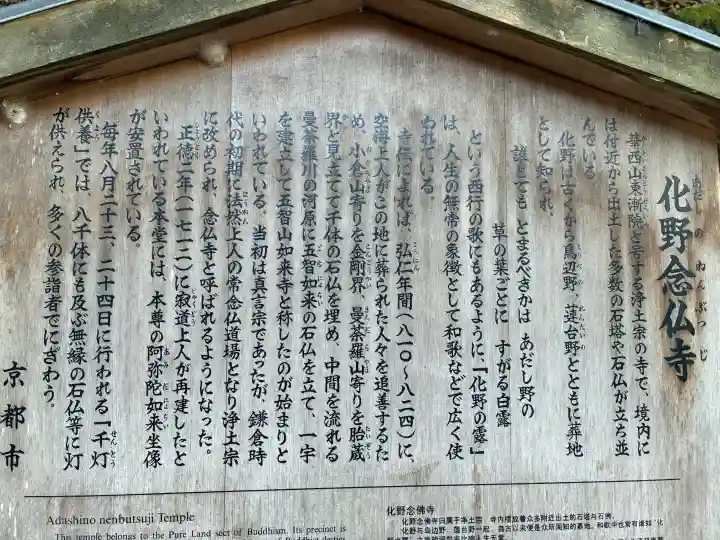 化野念仏寺
あだしのねんぶつじ
華西山東漸院と号する浄土宗の寺で、境内に
は付近から出土した多数の石塔や石仏が立ち並
んでいる
化野は古くから鳥辺野、蓮台野とともに葬地
として知られ、
誰とても とまるべきかは あだし野の
草の葉ごとに すがる白露
という西行の歌にもあるように、「化野の露」
は、人生の無常の象徴として和歌などで広く使
われている。
寺伝によれば、弘仁年間(八一〇〜八二四)に、
空海上人がこの地に葬られた人々を追善するた
め、小倉山寄りを金剛界、曼荼羅山寄りを胎蔵
界と見立てて千体の石仏を埋め、中間を流れる
曼荼羅川の河原に五智如来の石仏を立て、一宇
を建立して五智山如来寺と称したのが始まりと
いわれている。当初は真言宗であったが、鎌倉時
代の初期に法然上人の常念仏道場となり浄土宗
に改められ、念仏寺と呼ばれるようになった。
正徳二年(一七一二)に寂道上人が再建したと
いわれている本堂には、本尊の阿弥陀如来坐像
が安置されている。
毎年八月二十三、二十四日に行われる「千灯
供養」では、八千体にも及ぶ無縁の石仏等に灯
が供えられ、多くの参詣者でにぎわう。
京都市
Adashino nenbutsuji Temple
This temple belongs to the Pure Land sect of Buddhism. Its precinct is
化野念佛寺
化野念佛寺归属于净土宗 寺内摆放着众多附近出土的石塔与石佛。